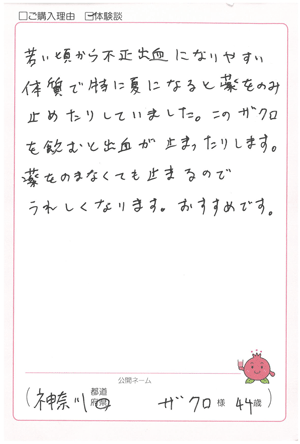 □ご購入理由 ☑体験談
若い頃から不正出血になりやすい
体質で特に夏になると薬をのみ
止めたりしていました。このザクロ
を飲むと出血が止まったりします。
薬をのまなくても止まるので
うれしくなります。おすすめです。
公開ネーム
(神奈川 都道府県 ザクロ 様 44歳)